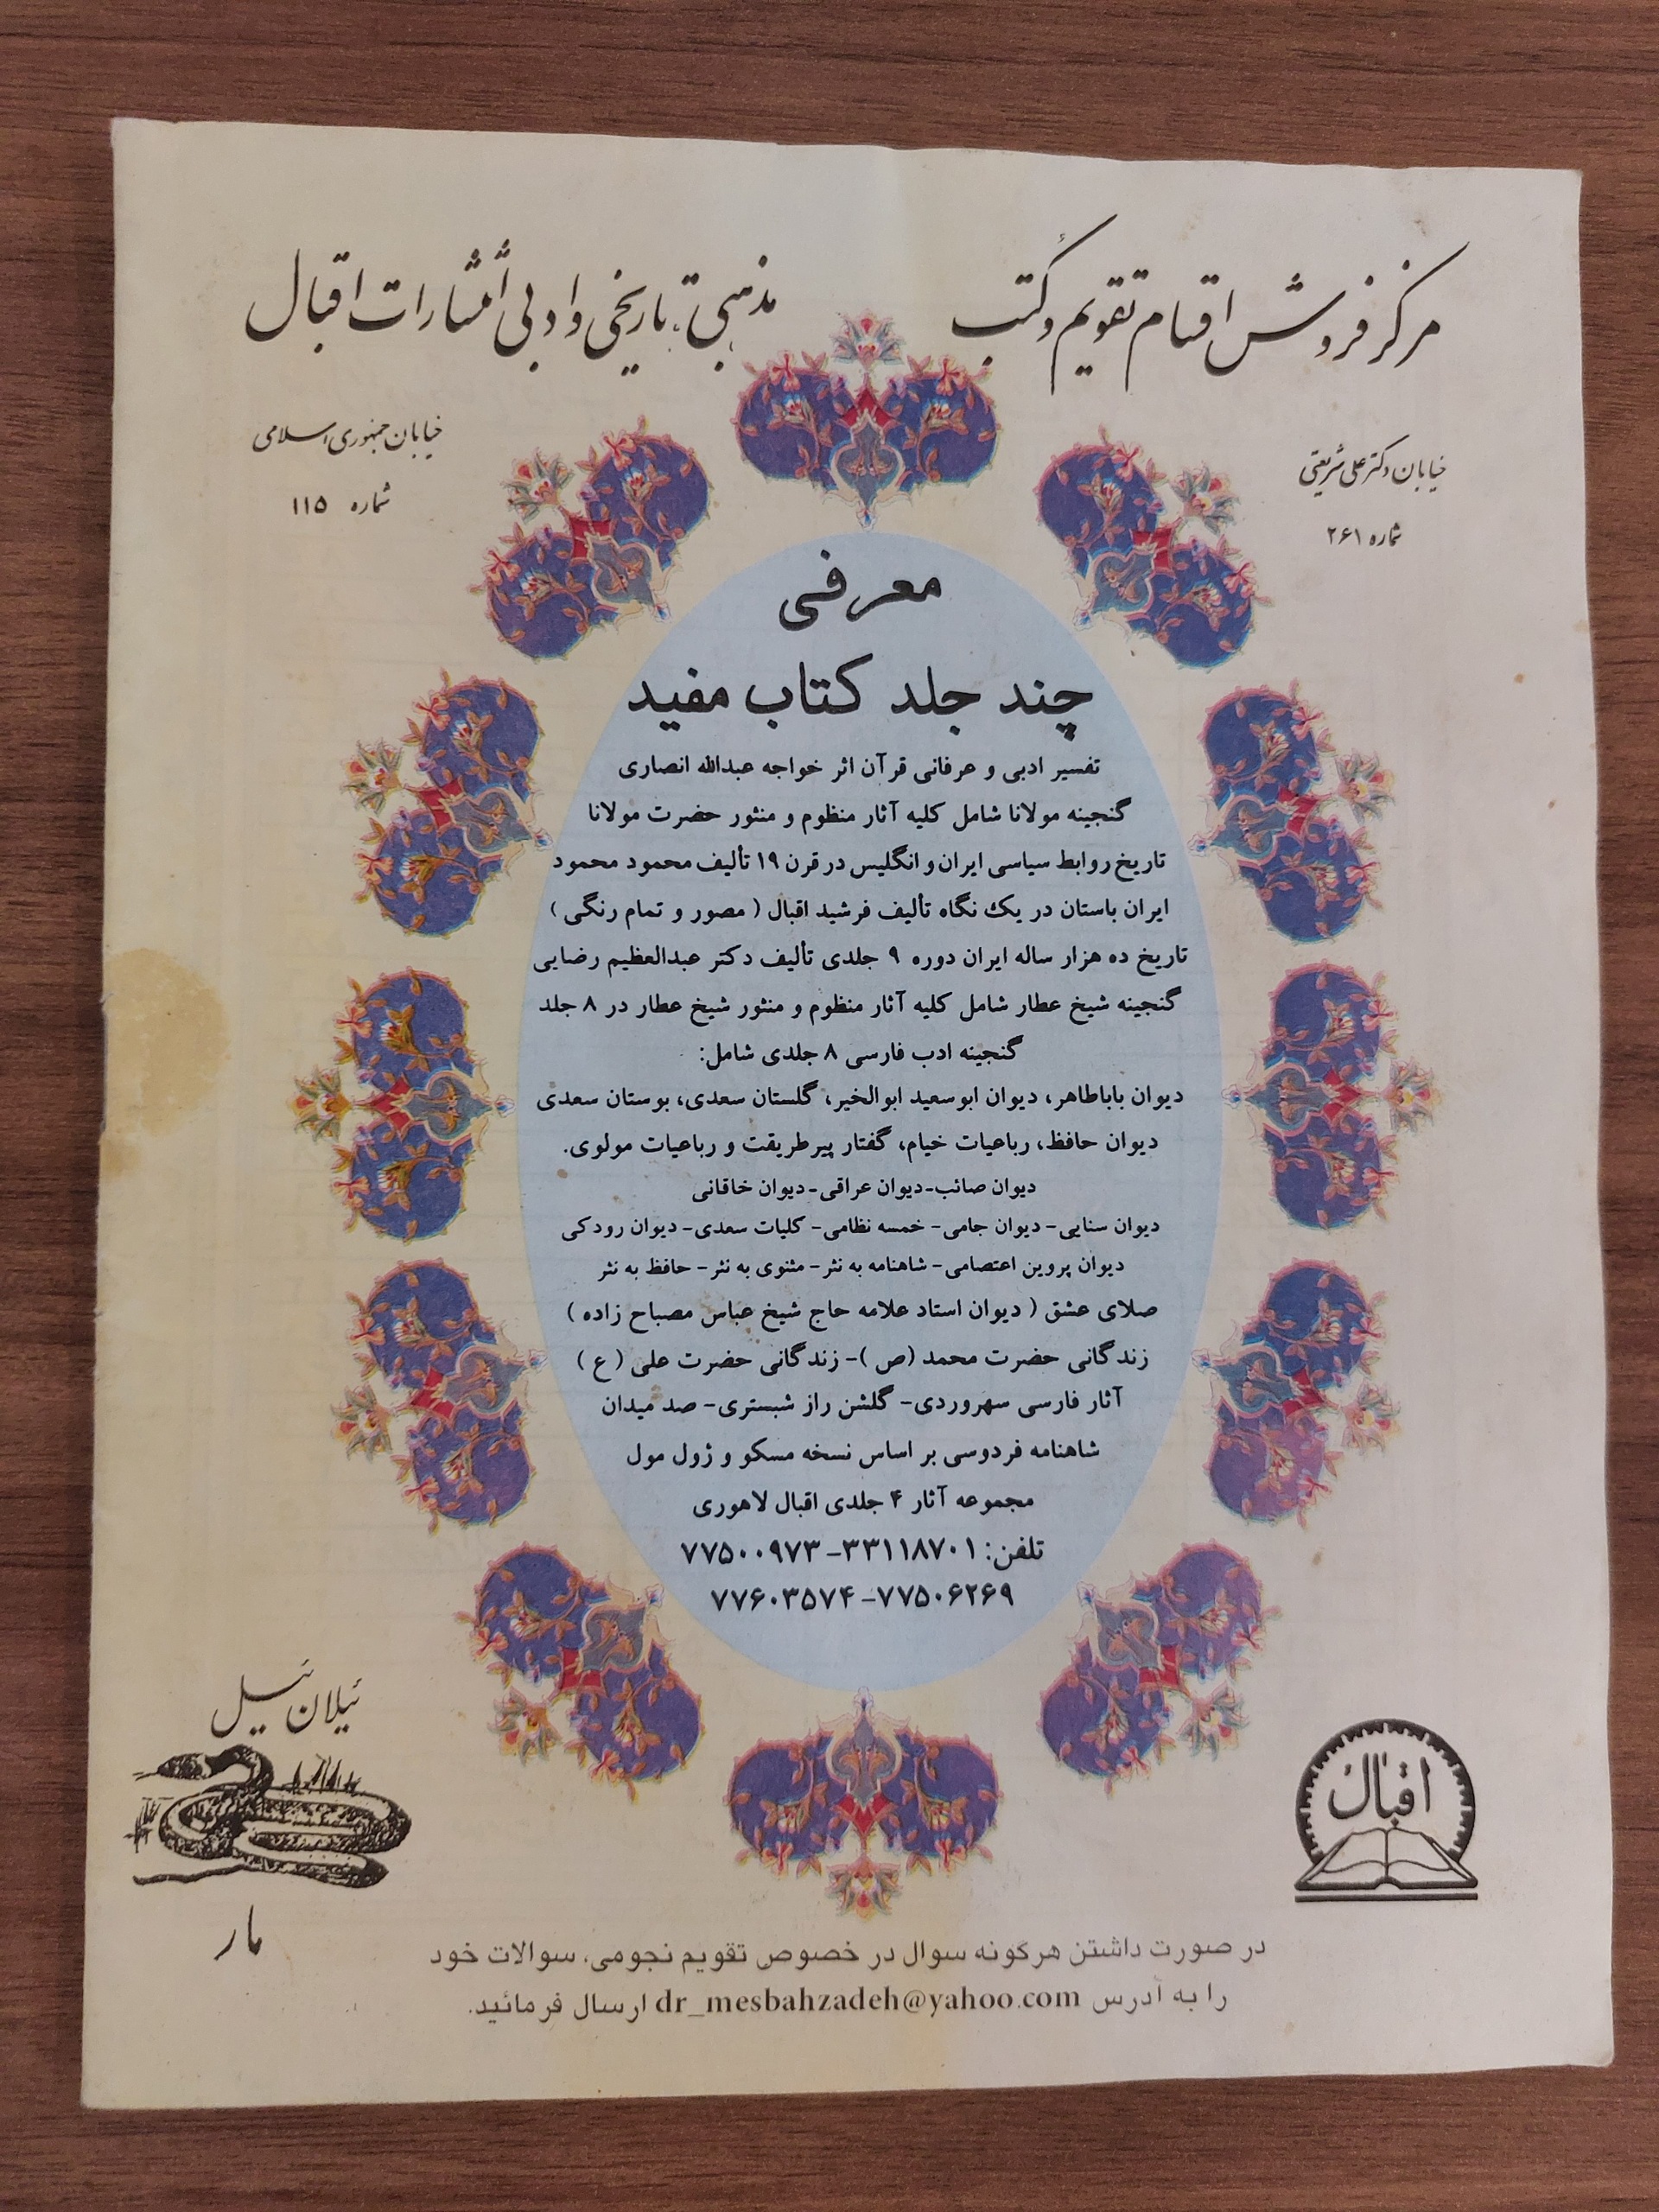 مرکز فروش اقسام تقویم و کتب مذهبی، تاریخی و ادبی انتشارات اقبال
خیابان دکتر علی شریعتی
شماره ۲۶۱
خیابان جمهوری اسلامی
شماره ۱۱۵
معرفی
چند جلد کتاب مفید
تفسیر ادبی و عرفانی قرآن اثر خواجه عبدالله انصاری
گنجینه مولانا شامل کلیه آثار منظوم و منثور حضرت مولانا
تاریخ روابط سیاسی ایران و انگلیس در قرن ۱۹ تألیف محمود محمود
ایران باستان در یک نگاه تألیف فرشید اقبال ( مصور و تمام رنگی )
تاریخ ده هزار ساله ایران دوره ۹ جلدی تألیف دکتر عبدالعظیم رضایی
گنجینه شیخ عطار شامل کلیه آثار منظوم و منثور شیخ عطار در ۸ جلد
گنجینه ادب فارسی ۸ جلدی شامل:
دیوان باباطاهر، دیوان ابوسعید ابوالخیر، گلستان سعدی، بوستان سعدی
دیوان حافظ، رباعیات خیام، گفتار پیر طریقت و رباعیات مولوی.
دیوان صائب-دیوان عراقی-دیوان خاقانی
دیوان سنایی- دیوان جامی- خمسه نظامی- کلیات سعدی- دیوان رودکی
دیوان پروین اعتصامی- شاهنامه به نثر- مثنوی به نثر- حافظ به نثر
صلای عشق ( دیوان استاد علامه حاج شیخ عباس مصباح زاده )
زندگانی حضرت محمد (ص )- زندگانی حضرت علی ( ع )
آثار فارسی سهروردی- گلشن راز شبستری- صد میدان
شاهنامه فردوسی بر اساس نسخه مسکو و ژول مول
مجموعه آثار ۴ جلدی اقبال لاهوری
تلفن: ۳۳۱۱۸۷۰۱-۷۷۵۰۰۹۷۳
۷۷۵۰۶۲۶۹-۷۷۶۰۳۵۷۴
ئیلان ئیل
مار
اقبال
در صورت داشتن هرگونه سوال در خصوص تقویم نجومی، سوالات خود
را به آدرس dr_mesbahzadeh@yahoo.com ارسال فرمائید.